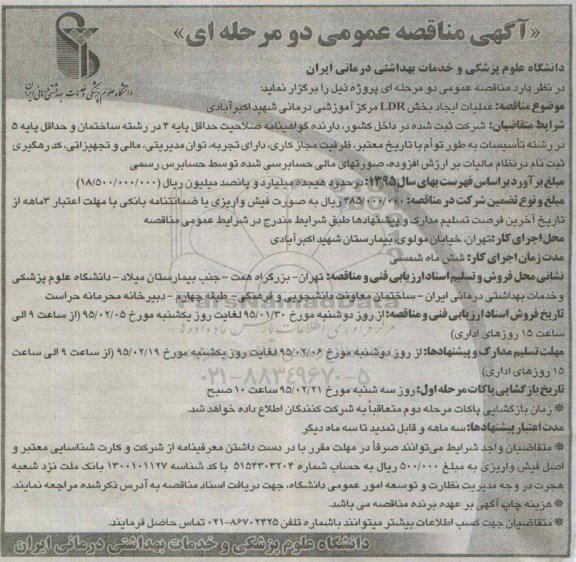 «آگهی مناقصه عمومی دو مرحله ای»
دانشگاه علوم پزشکی و خدمات بهداشتی درمانی ایران
دانشگاه علوم پزشکی و خدمات بهداشتی درمانی ایران
در نظر دارد مناقصه عمومی دو مرحله ای پروژه ذیل را برگزار نماید:
موضوع مناقصه: عملیات ایجاد بخش LDR مرکز آموزشی درمانی شهید اکبرآبادی
شرایط متقاضیان: شرکت ثبت شده در داخل کشور، دارنده گواهینامه صلاحیت حداقل پایه ۴ در رشته ساختمان و حداقل پایه ۵
در رشته تأسیسات به طور توأم با تاریخ معتبر، ظرفیت مجاز کاری، دارای تجربه، توان مدیریتی، مالی و تجهیزاتی، کد رهگیری
ثبت نام در نظام مالیات بر ارزش افزوده، صورتهای مالی حسابرسی شده توسط حسابرس رسمی
مبلغ برآورد بر اساس فهرست بهای سال ۱۳۹۵: در حدود هیجده میلیارد و پانصد میلیون ریال (۱۸/۵۰۰/۰۰۰/۰۰۰)
مبلغ و نوع تضمین شرکت در مناقصه: ۳۸۵/۰۰۰/۰۰۰ ریال به صورت فیش واریزی یا ضمانتنامه بانکی با مهلت اعتبار ۳ماهه از
تاریخ آخرین فرصت تسلیم مدارک و پیشنهادها طبق شرایط مندرج در شرایط عمومی مناقصه
محل اجرای کار: تهران، خیابان مولوی، بیمارستان شهید اکبرآبادی
مدت زمان اجرای کار: شش ماه شمسی
نشانی محل فروش و تسلیم اسناد ارزیابی فنی و مناقصه: تهران- بزرگراه همت – جنب بیمارستان میلاد – دانشگاه علوم پزشکی
و خدمات بهداشتی درمانی ایران – ساختمان معاونت دانشجویی و فرهنگی – طبقه چهارم – دبیرخانه محرمانه حراست
تاریخ فروش اسناد ارزیابی فنی و مناقصه: از روز دوشنبه مورخ ۹۵/۰۱/۳۰ لغایت روز یکشنبه مورخ ۹۵/۰۲/۰۵ (از ساعت ۹ الی
ساعت ۱۵ روزهای اداری)
مهلت تسلیم مدارک و پیشنهادها: از روز دوشنبه مورخ ۹۵/۰۲/۰۶ لغایت روز یکشنبه مورخ ۹۵/۰۲/۱۹ (از ساعت ۹ الی ساعت
۱۵ روزهای اداری)
۰۲۱-۸۸۳۴۹۶۷۰-۵
تاریخ بازگشایی پاکات مرحله اول: روز سه شنبه مورخ ۹۵/۰۲/۲۱ ساعت ۱۰ صبح
* زمان بازگشایی پاکات مرحله دوم متعاقباً به شرکت کنندگان اطلاع داده خواهد شد.
مدت اعتبار پیشنهادها: سه ماهه و قابل تمدید تا سه ماه دیگر
* متقاضیان واجد شرایط می‌توانند صرفاً در مهلت مقرر با در دست داشتن معرفینامه از شرکت و کارت شناسایی معتبر و
اصل فیش واریزی به مبلغ ۵۰۰/۰۰۰ ریال به حساب شماره ۵۱۵۴۳۰۳۲۰۴ با کد شناسه ۱۳۰۰۱۰۱۱۲۷ بانک ملت نزد شعبه
هجرت در وجه مدیریت نظارت و توسعه امور عمومی دانشگاه، جهت دریافت اسناد مناقصه به آدرس ذکرشده مراجعه نمایند.
* هزینه چاپ آگهی بر عهده برنده مناقصه می باشد.
* متقاضیان جهت کسب اطلاعات بیشتر میتوانند با شماره تلفن ۸۶۷۰۲۴۲۵-۰۲۱ تماس حاصل فرمایند.
دانشگاه علوم پزشکی و خدمات بهداشتی درمانی ایران